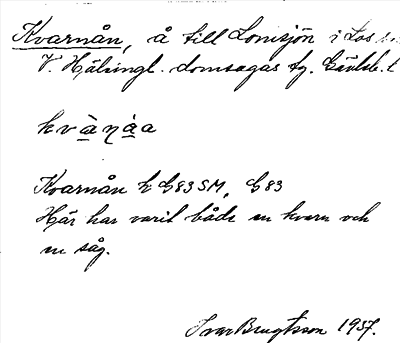 Kvarnån, å till Lomsjön i Los
V. Hälsingl. domsagas tg. Gävleb. l
kvànáa
Kvarnån h G83SM, G83
Här har varit både en kvarn och
en såg.
Ivar Bengtsson 1937.